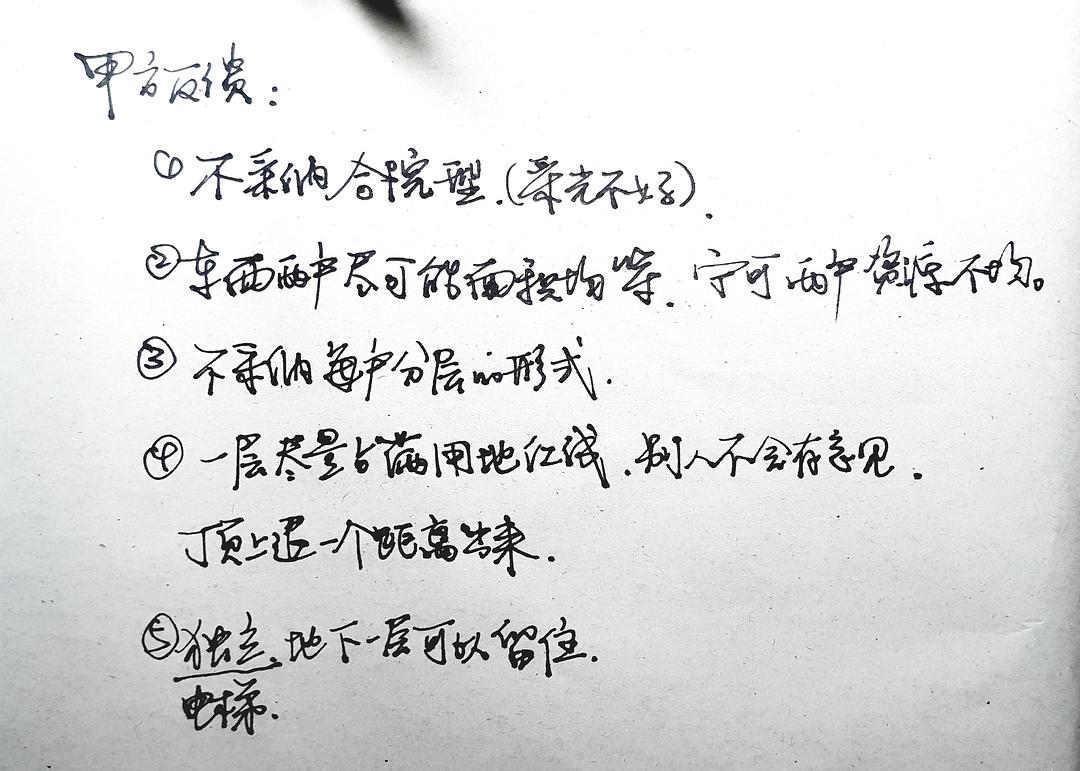 甲方反馈：
① 不采纳合院型.（采光不好）.
② 东西两户尽可能面积均等. 宁可两户资源不均。
③ 不采纳每户分层的形式.
④ 一层尽量占满用地红线. 别人不会有意见.
顶上退一个距离出来.
⑤ 独立. 地下一层可以留住.
电梯.